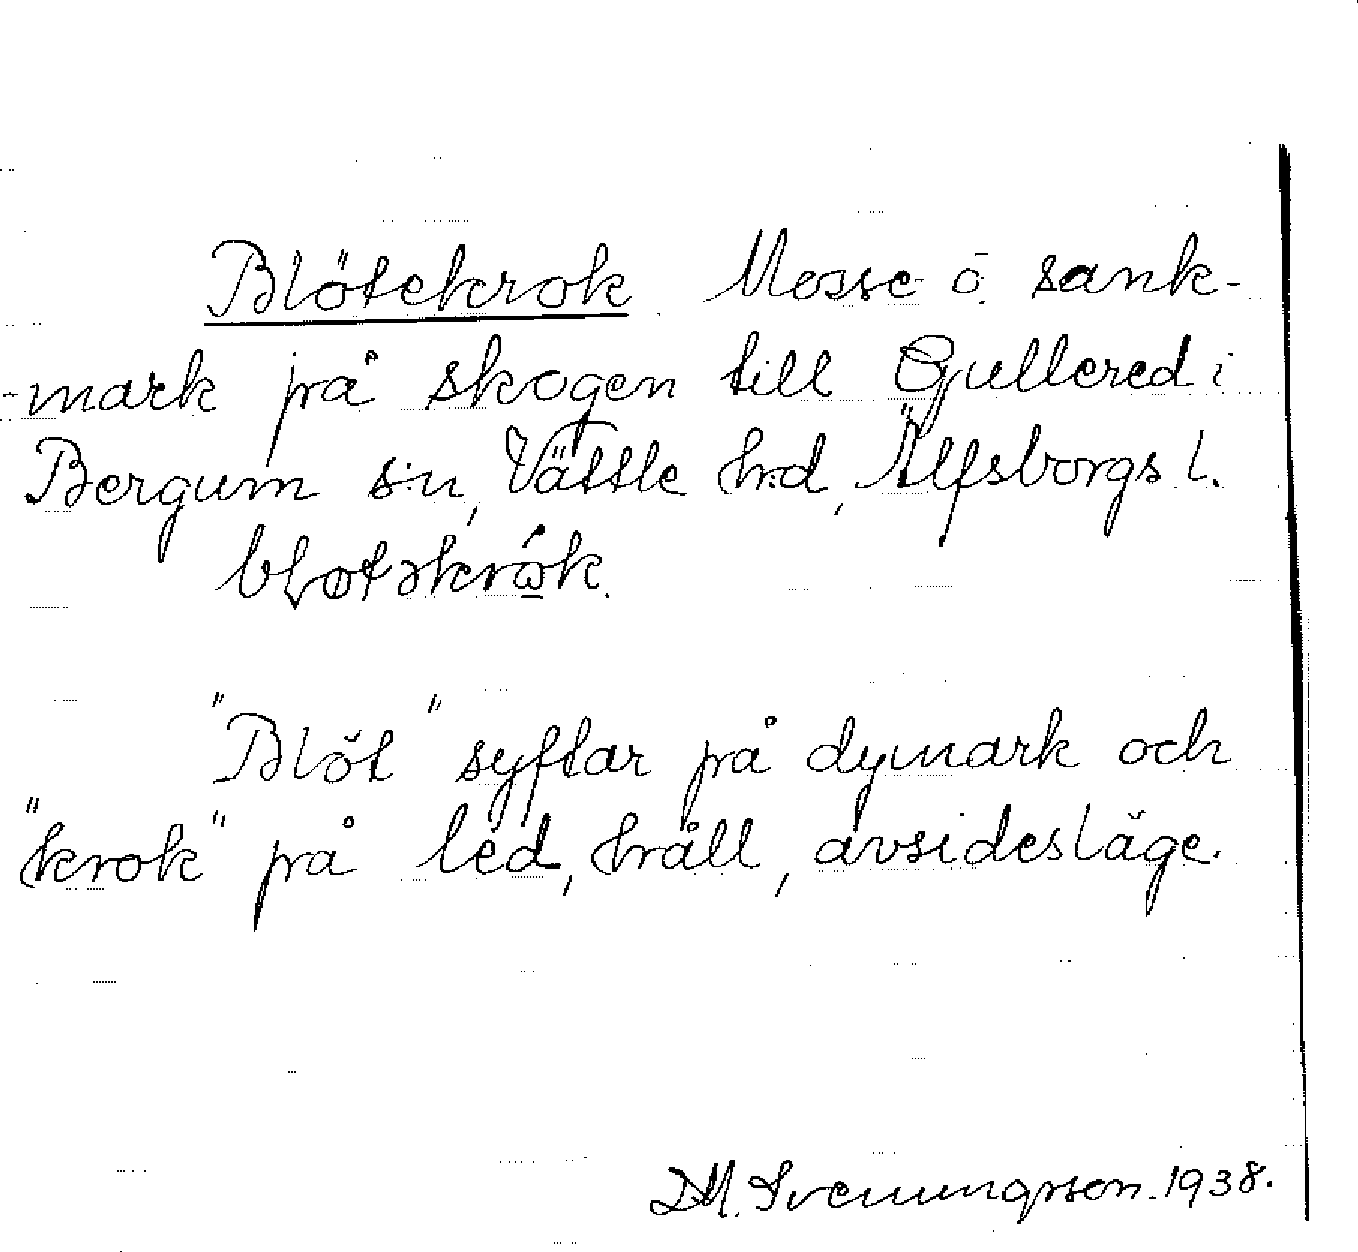 Blötekrok Mosse o. sank-
-mark på skogen till Gullered i
Bergum s:n, Vättle h:d, Älfsborgs l.
bløtəkrωk.
"Blöt" syftar på dymark och
"krok" på led, håll, avsidesläge.
D.M. Svenungsson. 1938.